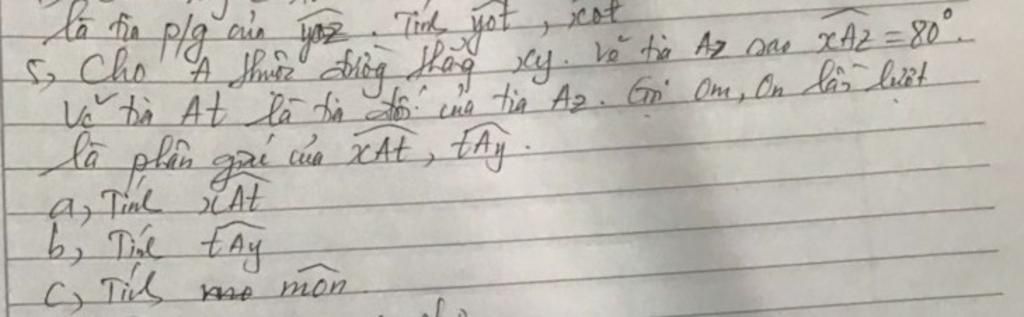 là tia p/g của yoz. Tính yot, xot
5, Cho A thuộc đường thẳng xy. Vẽ tia Az sao xAz = 80°.
Vẽ tia At là tia đối của tia Az. Gọi Om, On lần lượt
là phân giác của xAt, tAy.
a, Tính xAt
b, Tính tAy
c, Tính mOn